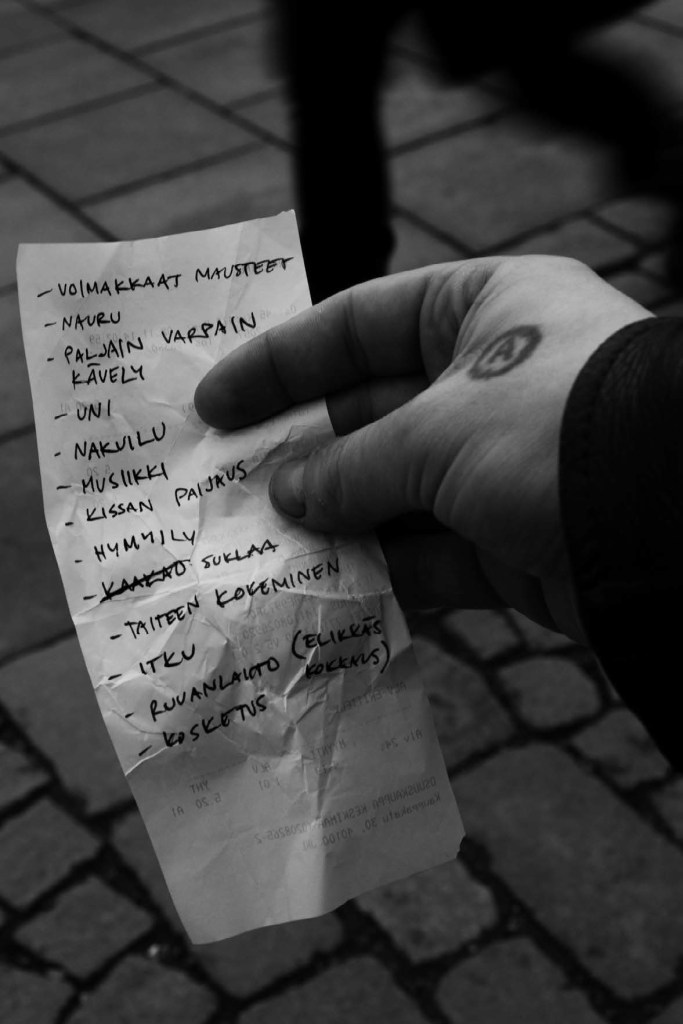 - VOIMAKKAAT MAUSTEET
- NAURU
- PALJAIN VARPAIN
KÄVELY
- UNI
- NAKUILU
- MUSIIKKI
- KISSAN PAIJAUS
- HYMYILY
- KAAKAO SUKLAA
- TAITEEN KOKEMINEN
- ITKU
- RUUANLAITTO (ELIKKÄS
KOKKAUS)
- KOSKETUS
A
YHT
5.20 A1
OSUUSKAUPPA KESKIMAA
40100